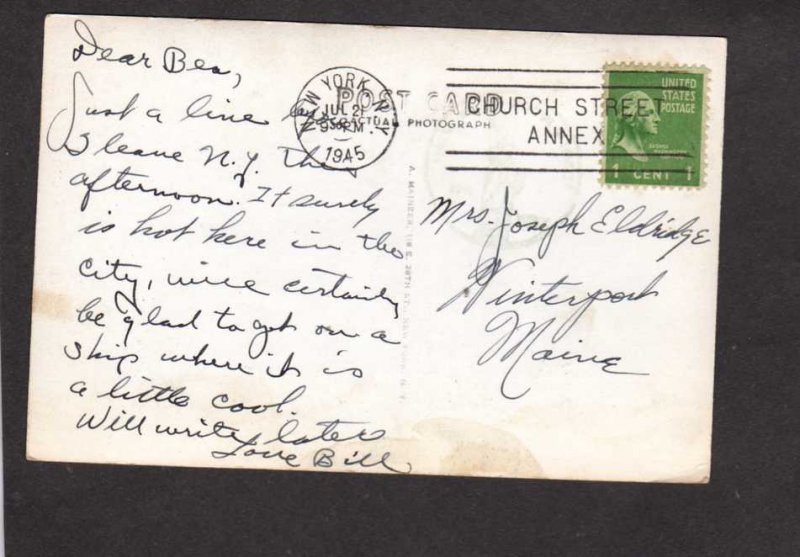 Dear Bea,
Just a line
I leave N.Y. This
afternoon. It surely
is hot here in the
city, will certainly
be glad to get on a
ship where it is
a little cool.
Will write later
Love Bill
POST CARD
ACTUAL PHOTOGRAPH
NEW YORK, N.Y.
JUL 2
PM
1945
CHURCH STREET
ANNEX
UNITED
STATES
POSTAGE
1 CENT 1
Mrs. Joseph Eldridge
Winterport
Maine
A. MAINZER,